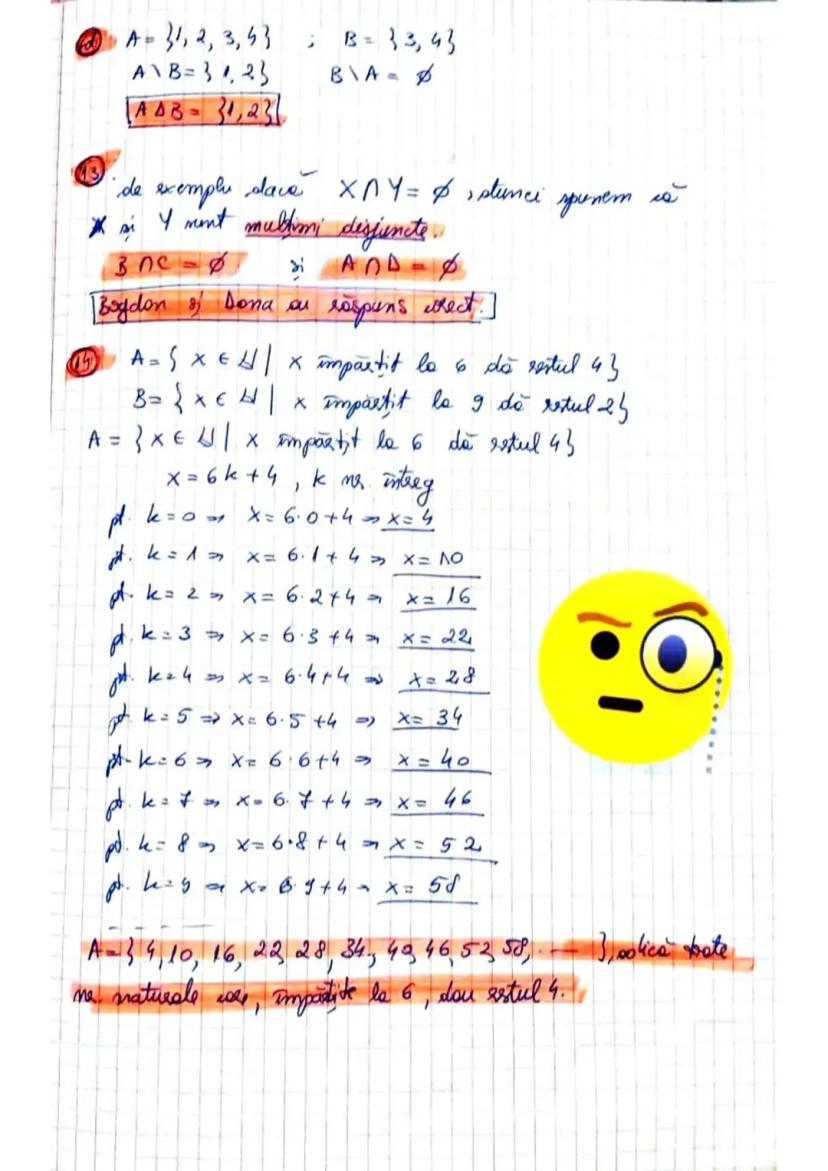 d) A = {1, 2, 3, 4} ; B = {3, 4}
A \ B = {1, 2} B \ A = ∅
A Δ B = {1, 2}
13 de exemplu dacă X ∩ Y = ∅, atunci spunem că
X și Y sunt mulțimi disjuncte.
B ∩ C = ∅ și A ∩ D = ∅
Bogdan și Dana au răspuns corect.
14 A = { x ∈ ℕ | x împărțit la 6 dă restul 4}
B = { x ∈ ℕ | x împărțit la 9 dă restul 2}
A = { x ∈ ℕ | x împărțit la 6 dă restul 4}
x = 6k + 4, k nr. întreg
pt. k = 0 ⇒ x = 6·0+4 ⇒ x = 4
pt. k = 1 ⇒ x = 6·1 + 4 ⇒ x = 10
pt. k = 2 ⇒ x = 6·2+4 ⇒ x = 16
pt. k = 3 ⇒ x = 6·3 +4 ⇒ x = 22
pt. k = 4 ⇒ x = 6·4+4 ⇒ x = 28
pt. k = 5 ⇒ x = 6·5 +4 ⇒ x = 34
pt. k = 6 ⇒ x = 6·6+4 ⇒ x = 40
pt. k = 7 ⇒ x = 6·7 + 4 ⇒ x = 46
pt. k = 8 ⇒ x = 6·8 + 4 ⇒ x = 52
pt. k = 9 ⇒ x = 6·9+4 ⇒ x = 58
A = { 4, 10, 16, 22, 28, 34, 40, 46, 52, 58, ..... }, adică toate
nr. naturale care, împărțite la 6, dau restul 4.